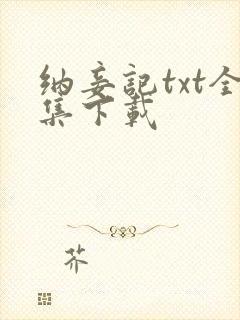 纳妾記txt全
集下載
芥